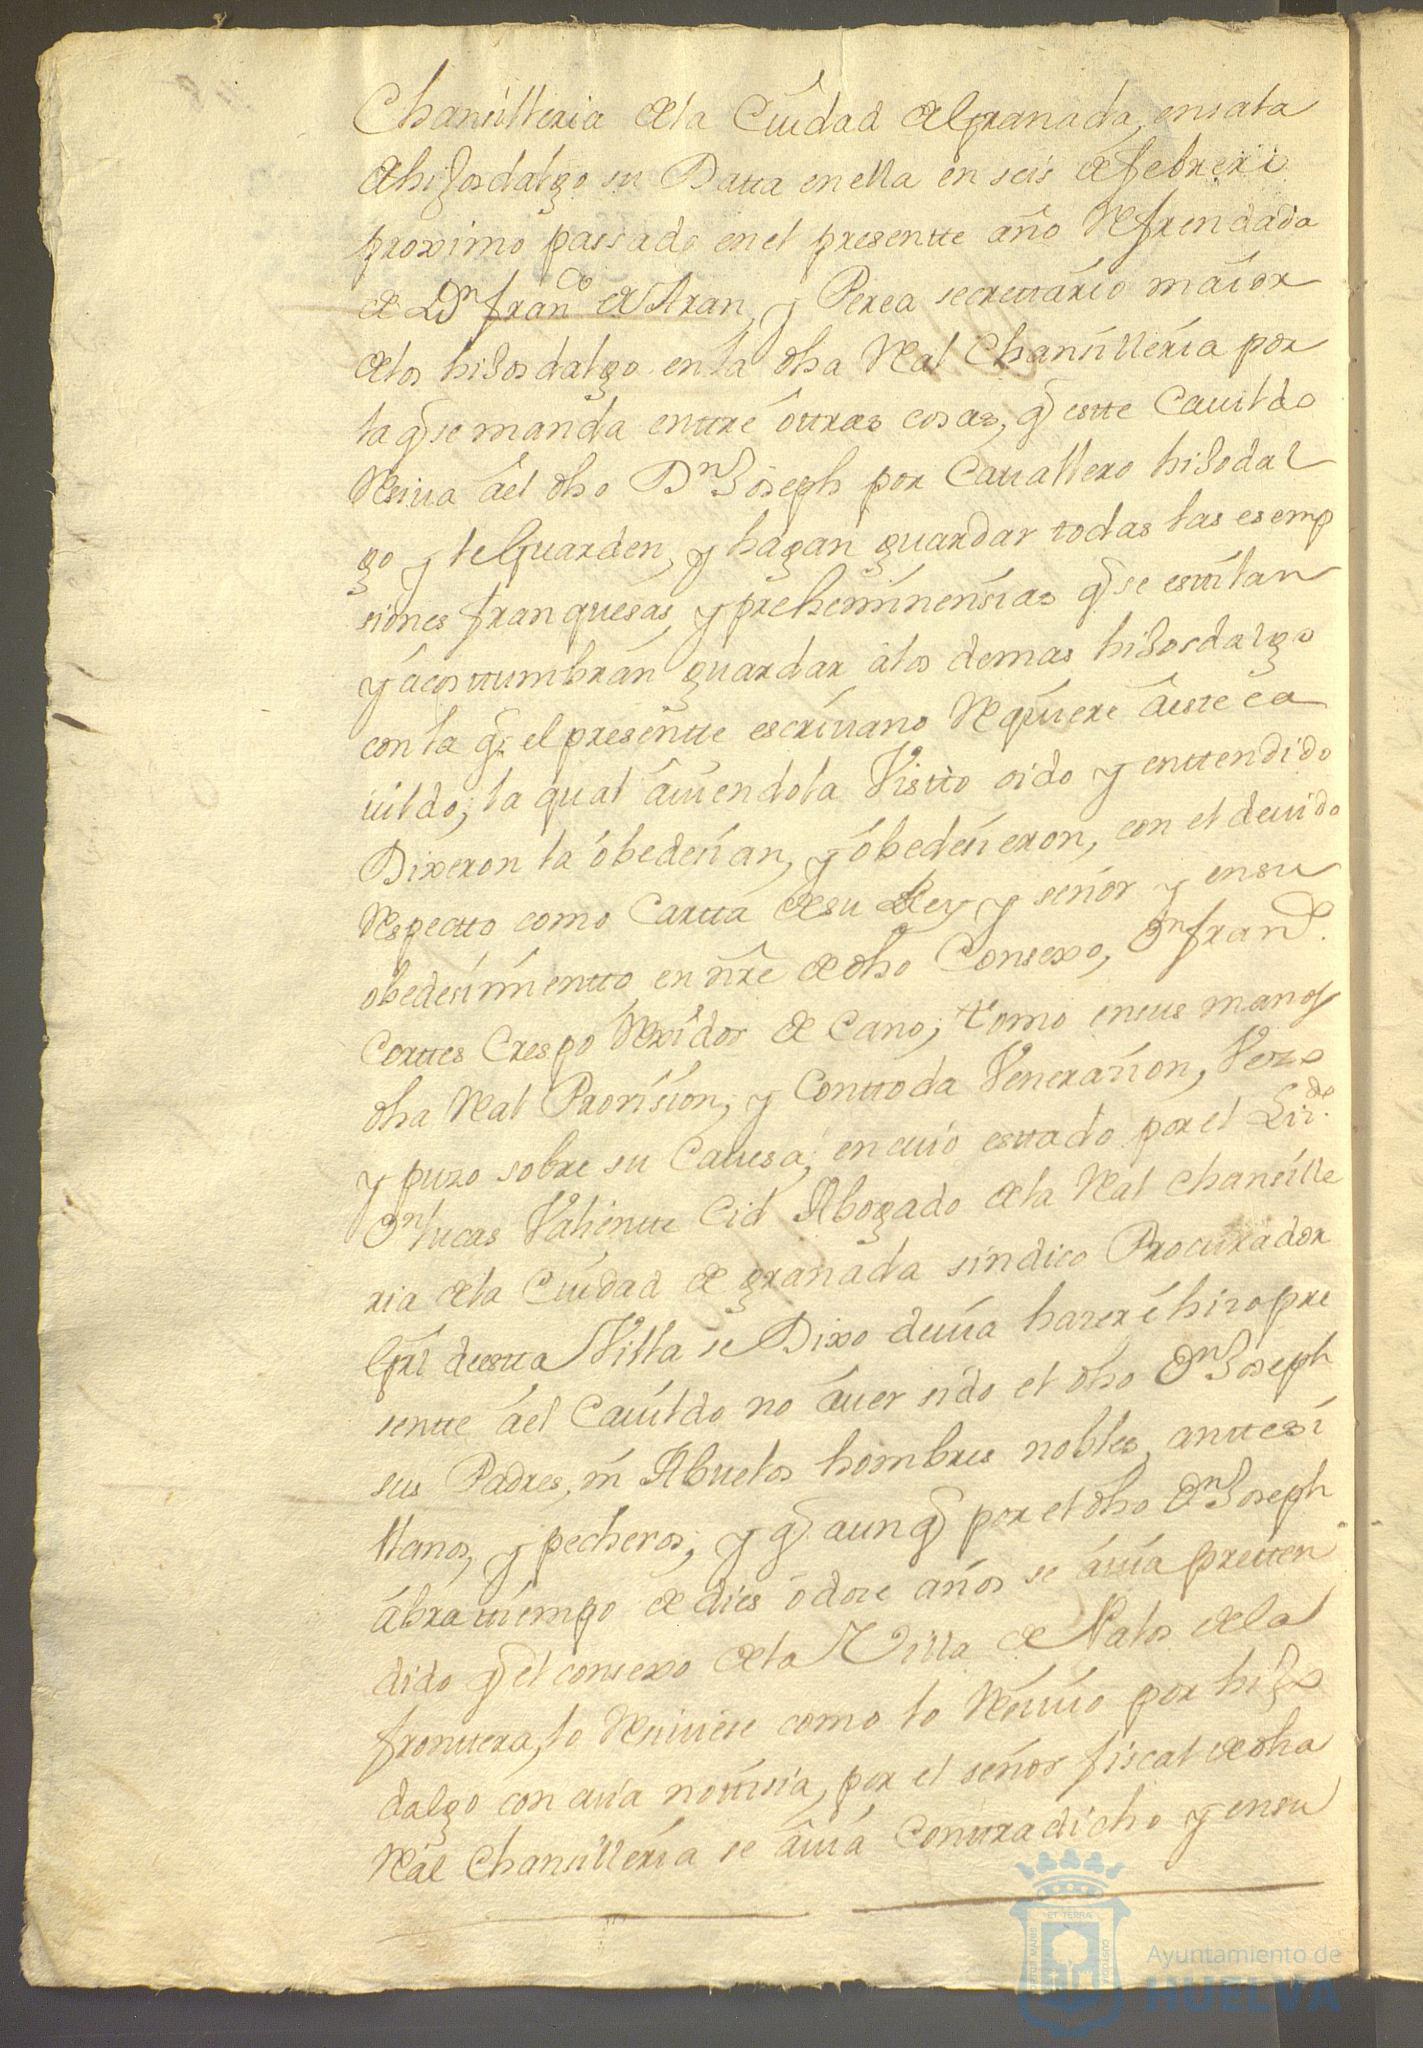 Chansilleria de la Ciudad de Granada, en sala
de hijosdalgo su Datta en ella en seis de febrero
proximo passado en el presentte año Refrendada
de Dn franco de Aran, y Perea secrettario maior
de los hijosdalgo en la dha Real Chansilleria por
la q se manda enttre ottras cosas, q estte Cauildo
Resiua âel dho Dn Joseph por Cauallero hijodal
go y le Guarden, y hagan guardar todas las esemp
siones franquesas, y preheminensias q se estilan
y acosttumbran guardar a los demas hijosdalgo
con la q el presentte escriuano Requiere âeste ca
uildo; la qual âuiendola Vistto oido y enttendido
Dixeron la obedesian, y obedesieron, con el deuido
Respectto como Cartta de su Rey y señor y en su
obedesimientto, en nre de dho Consexo, Dn franco
Corttes Crespo Rexidor de Cano; tomo en sus manos
dha Real Prouision, y Con ttoda Venerasion, Veso
y puso sobre su Cauesa; en cuio esttado por el Lizdo
Dn lucas Valientte Cid Abogado de la Real chansille
ria de la Ciudad de granada sindico Procurador
Gral desta Villa se Dixo deuia hazer é hizo pre
sentte âel Cauildo no âuer sido el dho Dn Joseph
sus Padres, ni Abuelos hombres nobles, anttes si
llanos, y pecheros; y q aunq por el dho Dn Joseph
âbra tiempo de dies o dose años se âuia pretten
dido q el consexo de la Villa de Palos de la
fronttera, lo Resiuiese como lo Resiuio por hijo
dalgo con cuia nottisia, por el señor fiscal de dha
Real Chansilleria se âuia Conttradicho y en su
Ayuntamiento de
HUELVA